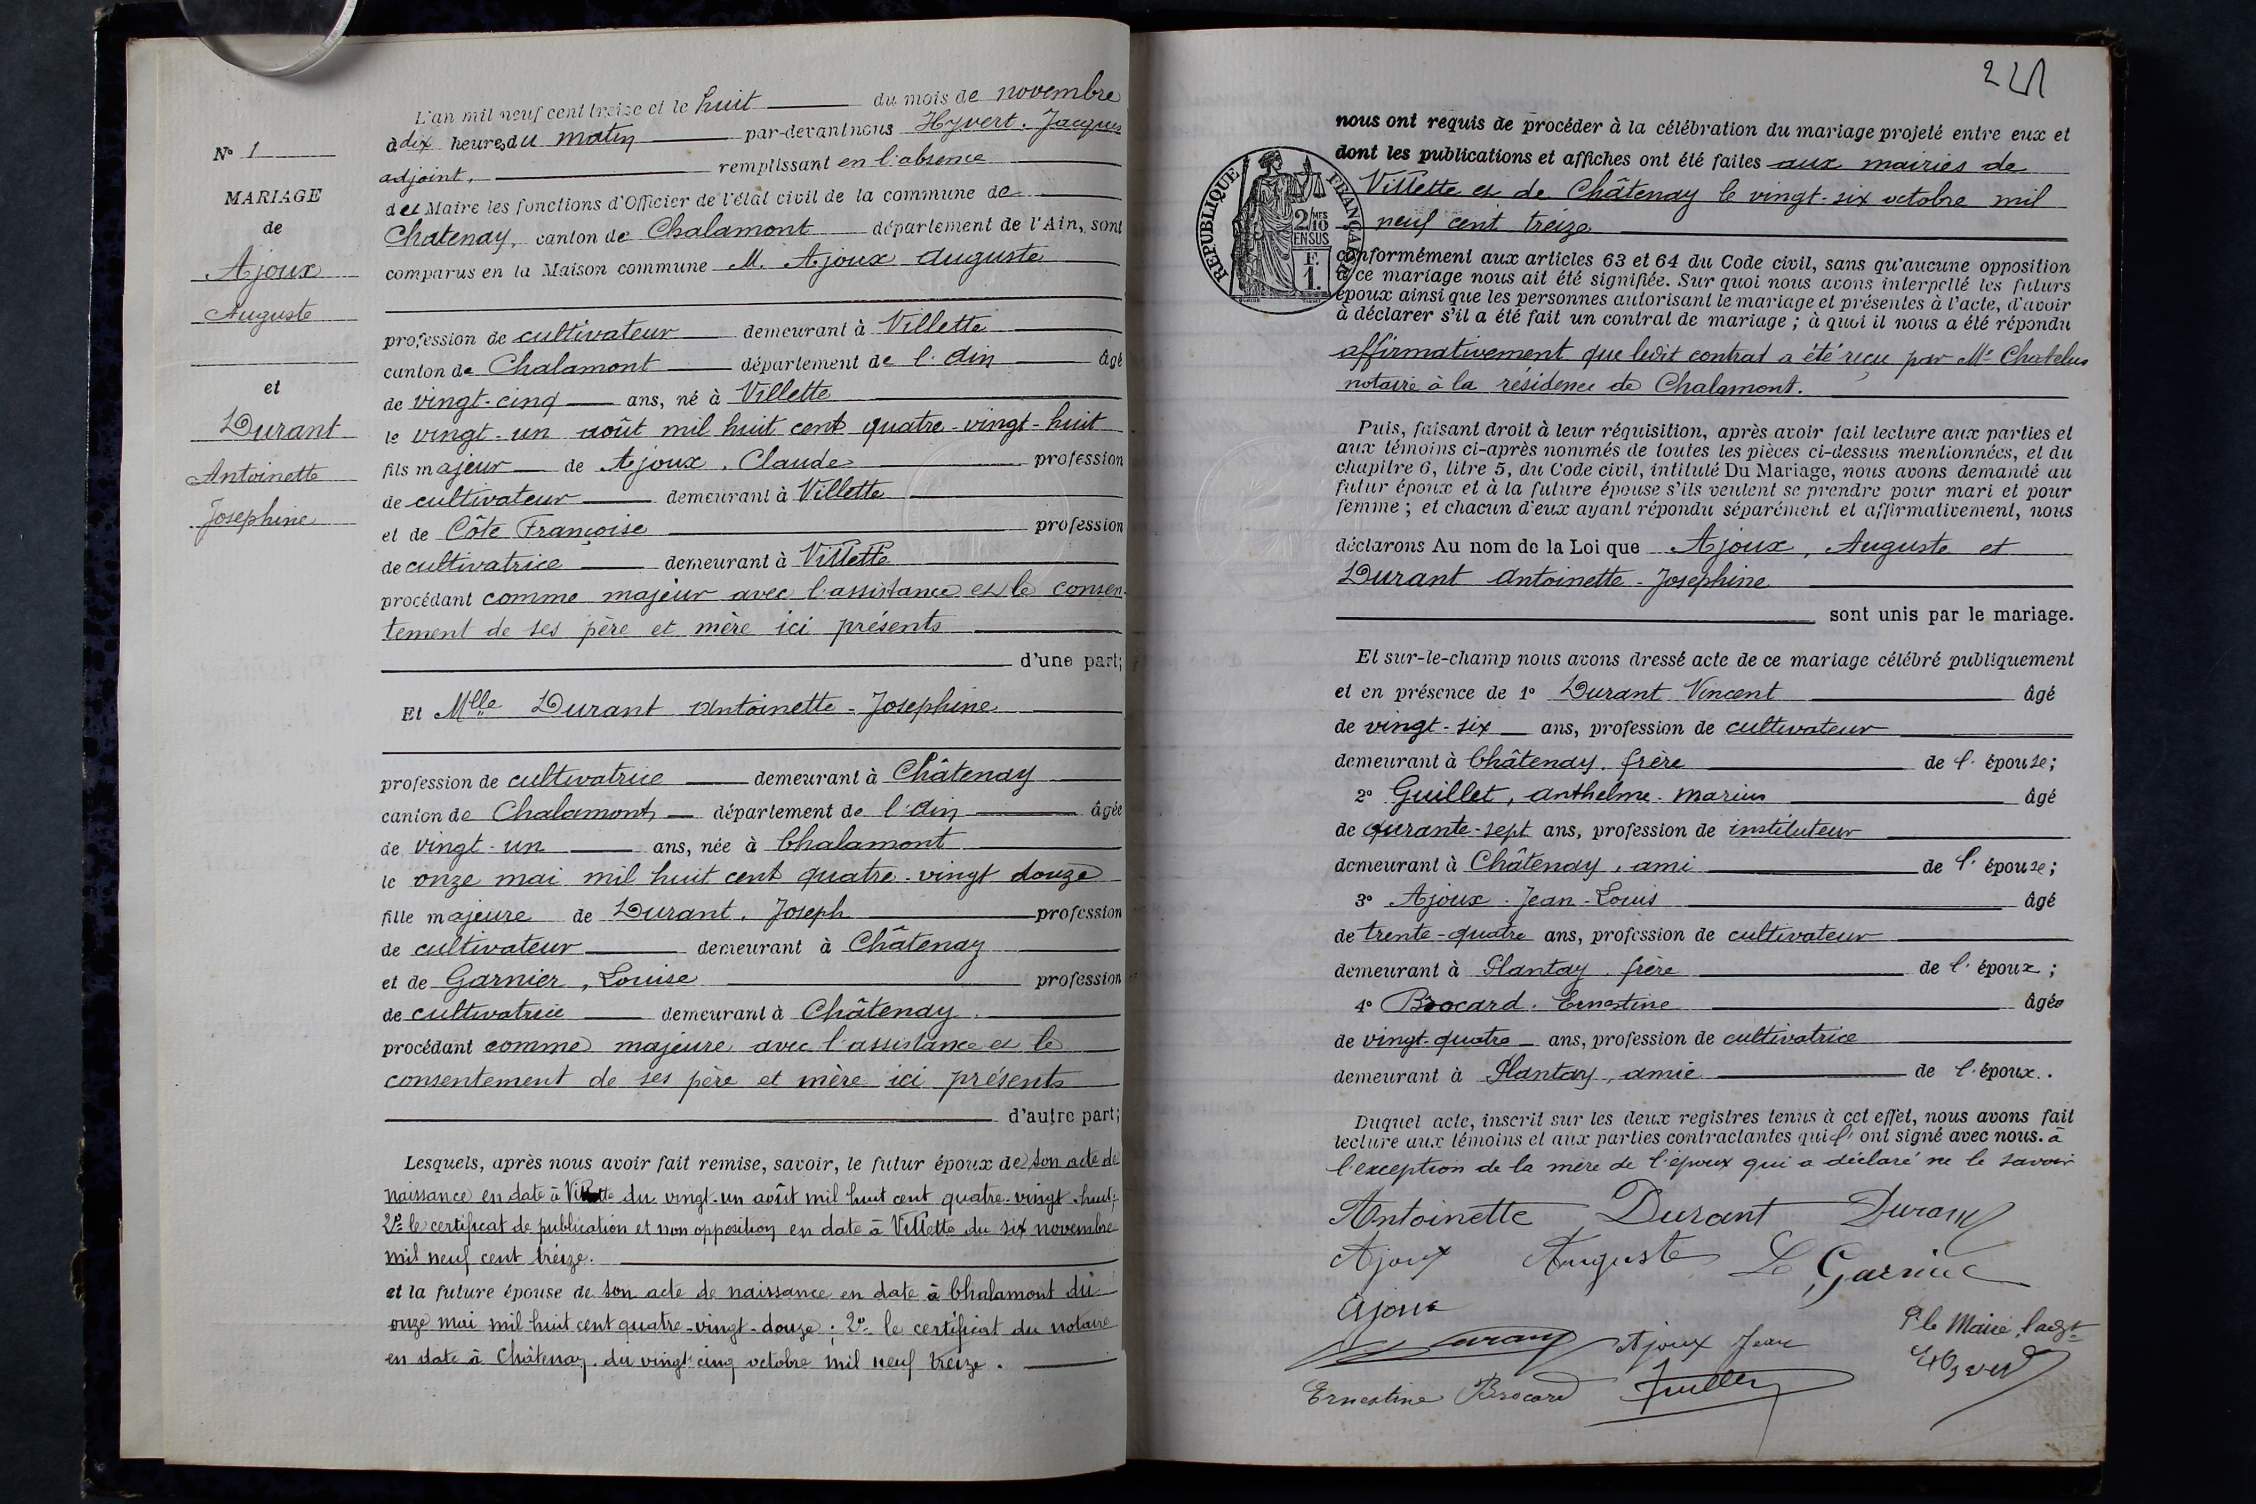 N° 1
MARIAGE
de
Ajoux
Auguste
et
Durant
Antoinette
Josephine
L'an mil neuf cent treize et le huit du mois de novembre
à dix heures du matin par-devant nous Hyvert. Jacques
adjoint, remplissant en l'absence
du Maire les fonctions d'Officier de l'état civil de la commune de
Chatenay, canton de Chalamont département de l'Ain, sont
comparus en la Maison commune M. Ajoux Auguste
profession de cultivateur demeurant à Villette
canton de Chalamont département de l'Ain âgé
de vingt-cinq ans, né à Villette
le vingt-un août mil huit cent quatre-vingt-huit
fils majeur de Ajoux, Claude profession
de cultivateur demeurant à Villette
et de Côte Françoise profession
de cultivatrice demeurant à Villette
procédant comme majeur avec l'assistance et le consen-
tement de ses père et mère ici présents
d'une part;
Et Mlle Durant Antoinette-Josephine
profession de cultivatrice demeurant à Châtenay
canton de Chalamont département de l'Ain âgée
de vingt-un ans, née à Chalamont
le onze mai mil huit cent quatre-vingt douze
fille majeure de Durant, Joseph profession
de cultivateur demeurant à Châtenay
et de Garnier, Louise profession
de cultivatrice demeurant à Châtenay.
procédant comme majeure avec l'assistance et le
consentement de ses père et mère ici présents
d'autre part;
Lesquels, après nous avoir fait remise, savoir, le futur époux de son acte de
naissance en date à Villette du vingt-un août mil huit cent quatre-vingt-huit;
2° le certificat de publication et non opposition en date à Villette du six novembre
mil neuf cent treize.
et la future épouse de son acte de naissance en date à Chalamont du
onze mai mil huit cent quatre-vingt-douze; 2° le certificat du notaire
en date à Châtenay. du vingt cinq octobre mil neuf treize.
221
nous ont requis de procéder à la célébration du mariage projeté entre eux et
dont les publications et affiches ont été faites aux mairies de
Villette et de Châtenay le vingt-six octobre mil
neuf cent treize
RÉPUBLIQUE FRANÇAISE
2/MES
10
EN SUS
F.
1.
conformément aux articles 63 et 64 du Code civil, sans qu'aucune opposition
à ce mariage nous ait été signifiée. Sur quoi nous avons interpellé les futurs
époux ainsi que les personnes autorisant le mariage et présentes à l'acte, d'avoir
à déclarer s'il a été fait un contrat de mariage; à quoi il nous a été répondu
affirmativement que ledit contrat a été reçu par Me Chatelus
notaire à la résidence de Chalamont.
Puis, faisant droit à leur réquisition, après avoir fait lecture aux parties et
aux témoins ci-après nommés de toutes les pièces ci-dessus mentionnées, et du
chapitre 6, titre 5, du Code civil, intitulé Du Mariage, nous avons demandé au
futur époux et à la future épouse s'ils veulent se prendre pour mari et pour
femme; et chacun d'eux ayant répondu séparément et affirmativement, nous
déclarons Au nom de la Loi que Ajoux, Auguste et
Durant Antoinette-Josephine
sont unis par le mariage.
Et sur-le-champ nous avons dressé acte de ce mariage célébré publiquement
et en présence de 1° Durant Vincent âgé
de vingt-six ans, profession de cultivateur
demeurant à Châtenay. frère de l'épouse;
2° Guillet, Anthelme. Marius âgé
de qurante-sept ans, profession de instituteur
demeurant à Châtenay, ami de l'épouse;
3° Ajoux. Jean-Louis âgé
de trente-quatre ans, profession de cultivateur
demeurant à Plantay. frère de l'époux;
4° Brocard. Ernestine âgée
de vingt-quatre ans, profession de cultivatrice
demeurant à Plantay, amie de l'époux.
Duquel acte, inscrit sur les deux registres tenus à cet effet, nous avons fait
lecture aux témoins et aux parties contractantes qui l'ont signé avec nous. à
l'exception de la mère de l'époux qui a déclaré ne le savoir
Antoinette Durant Durant
Ajoux Auguste L Garnier
Ajoux
Durant Ajoux Jean
P. le Maire, l'adjt
Hyvert
Ernestine Brocard Guillet